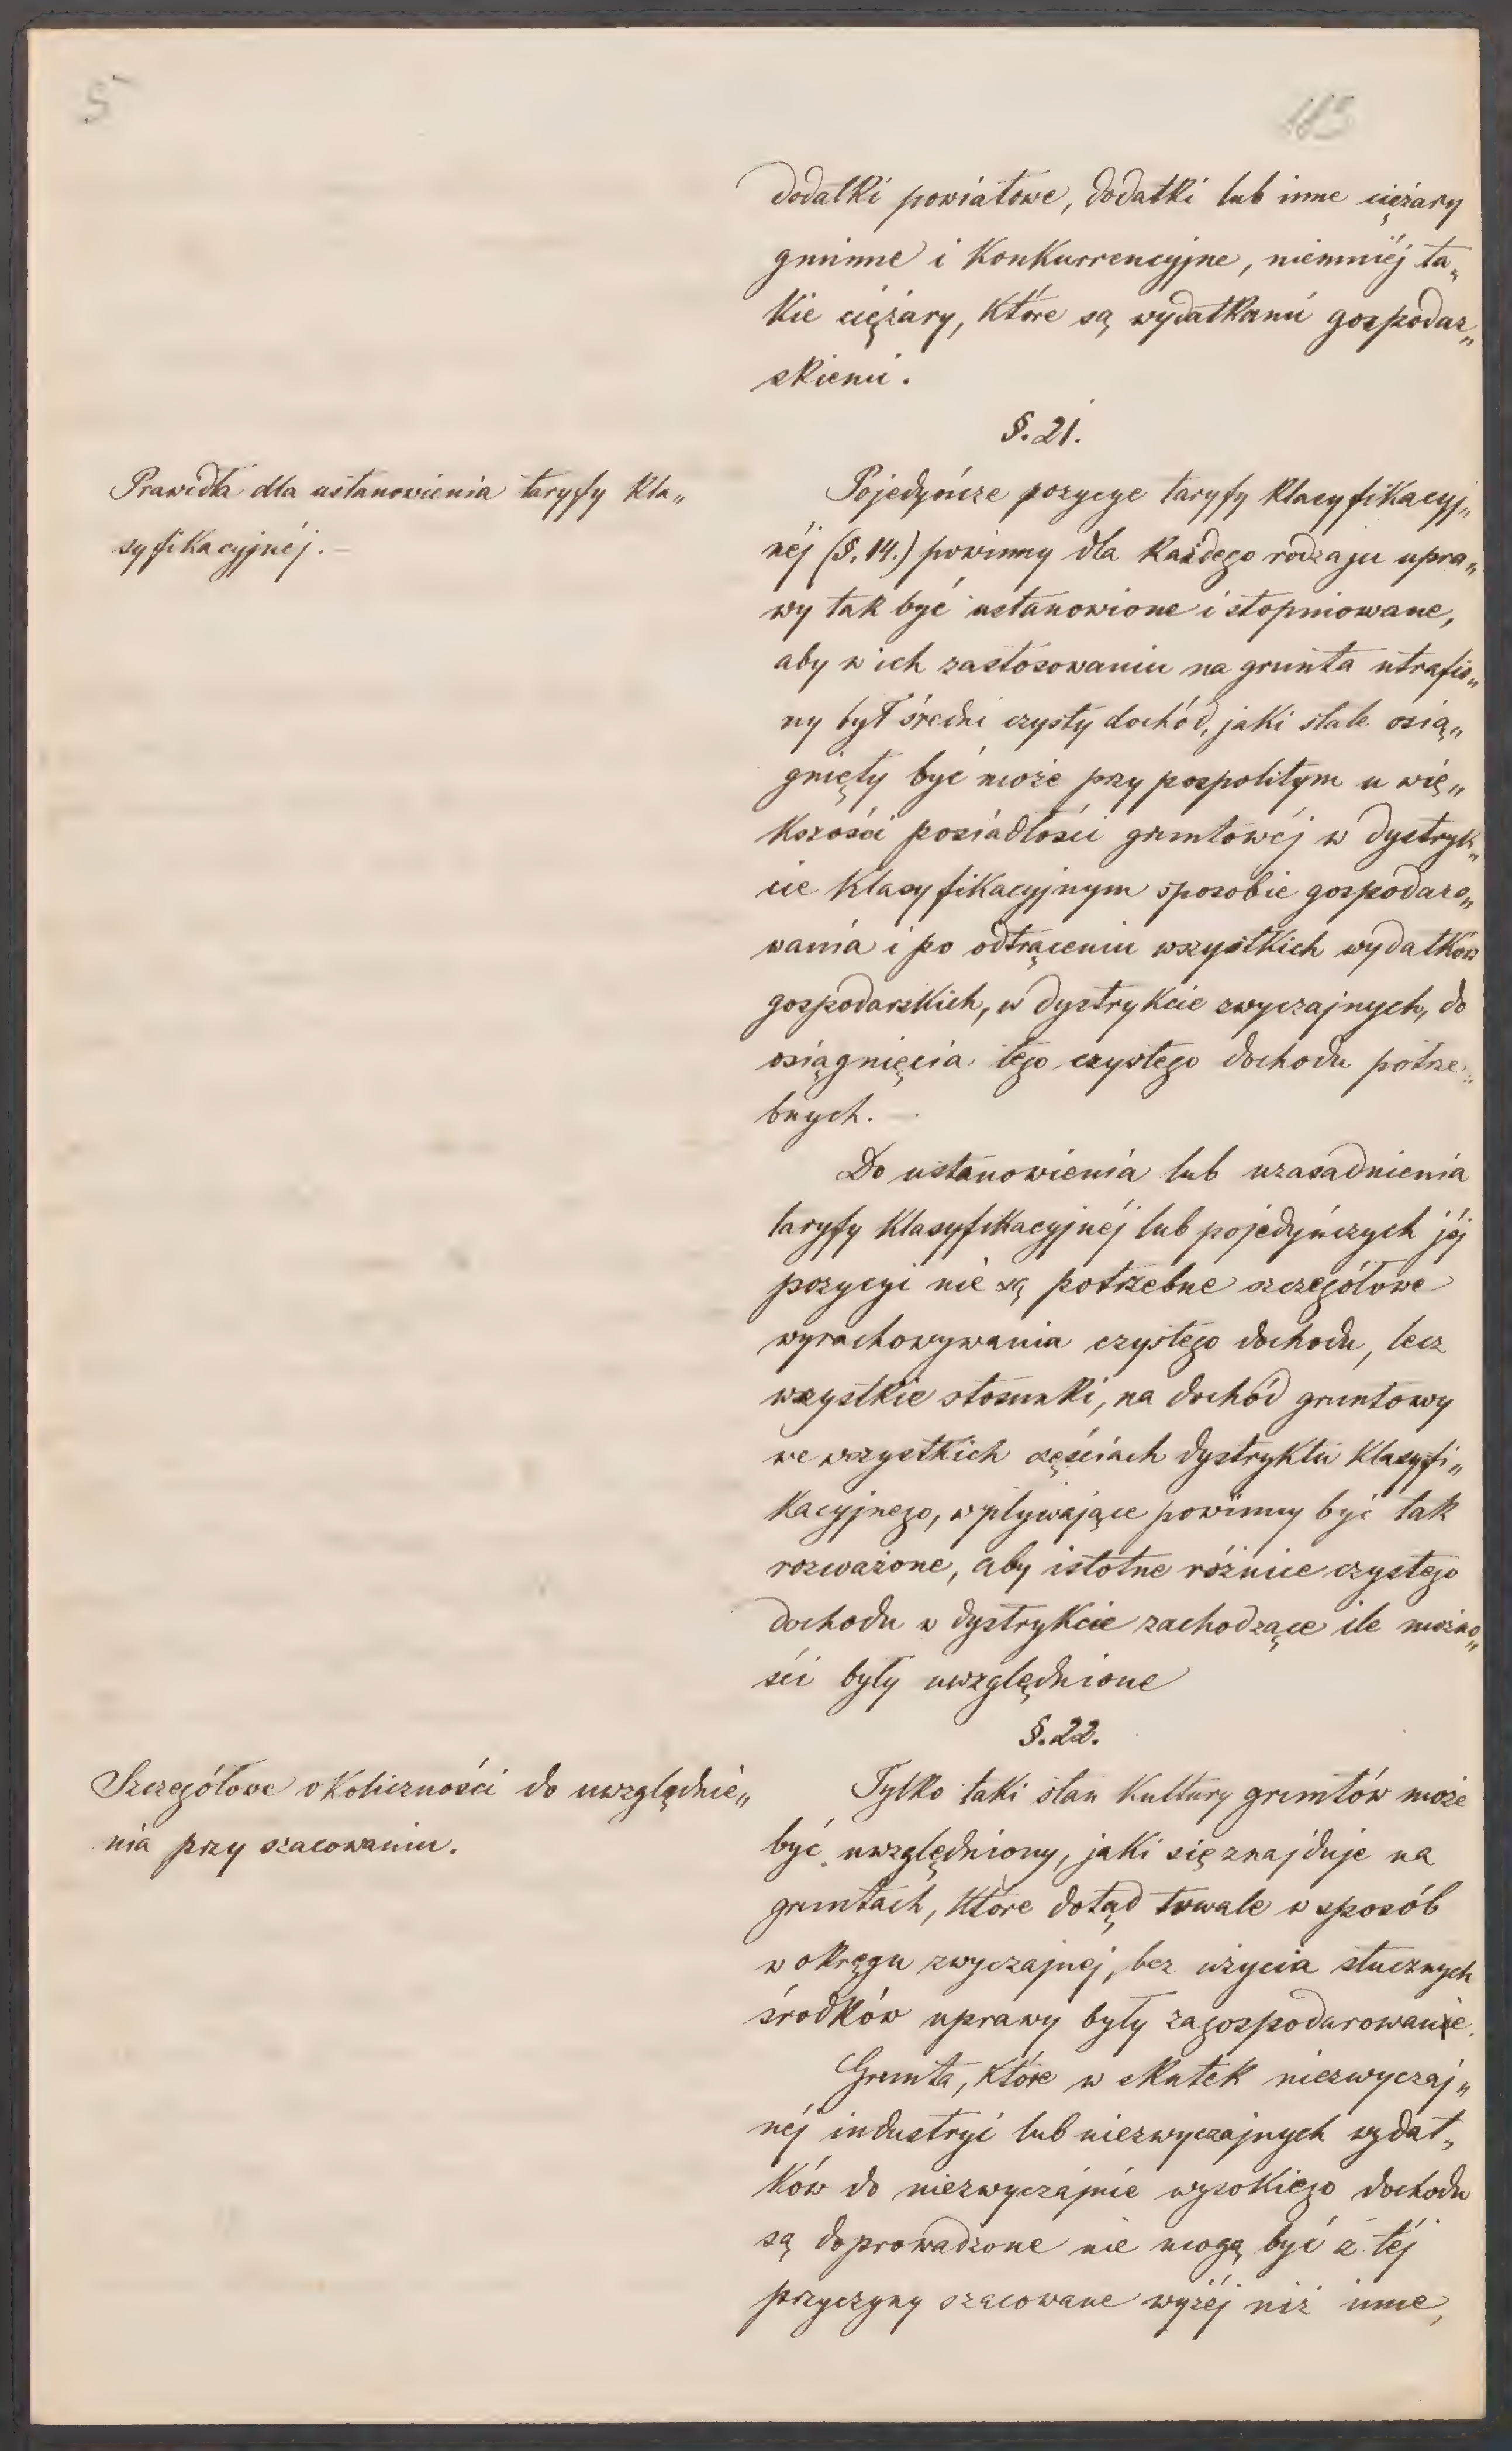 5
183
dodatki powiatowe, dodatki lub inne ciężary
gminne i konkurrencyjne, niemniéj ta„
kie ciężary, które są wydatkami gospodar„
skiemi.
§. 21.
Prawidła dla ustanowienia taryfy kla„
syfikacyjnéj. —
Pojedyńcze pozycye taryfy klasyfikacyj„
néj (§. 14.) powinny dla każdego rodzaju upra„
wy tak być ustanowione i stopniowane,
aby w ich zastósowaniu na grunta utrafio„
ny był średni czysty dochód, jaki stale osią„
gnięty być może przy pospolitym u wię„
kszości posiadłości gruntowéj w dystryk„
cie klasyfikacyjnym sposobie gospodaro„
wania i po odtrąceniu wszystkich wydatków
gospodarskich, w dystrykcie zwyczajnych, do
osiągnięcia tego czystego dochodu potrze„
bnych. —
Do ustanowienia lub uzasadnienia
taryfy klasyfikacyjnéj lub pojedyńczych jéj
pozycyi nie są potrzebne szczegółowe
wyrachowywania czystego dochodu, lecz
wszystkie stosunki, na dochód gruntowy
we wszystkich częściach dystryktu klasyfi„
kacyjnego, wpływające powinny być tak
rozważone, aby istotne różnice czystego
dochodu w dystrykcie zachodzące ile możno„
ści były uwzględnione
§. 22.
Szczegółowe okoliczności do uwzględnie„
nia przy szacowaniu.
Tylko taki stan kultury gruntów może
być uwzględniony, jaki się znajduje na
gruntach, które dotąd trwale w sposób
w okręgu zwyczajnej, bez użycia stucznych
środków uprawy były zagospodarowane.
Grunta, które w skutek niezwyczaj„
néj industryi lub niezwyczajnych wydat„
ków do niezwyczajnie wysokiego dochodu
są doprowadzone nie mogą być z téj
przyczyny szacowane wyżéj niż inne,